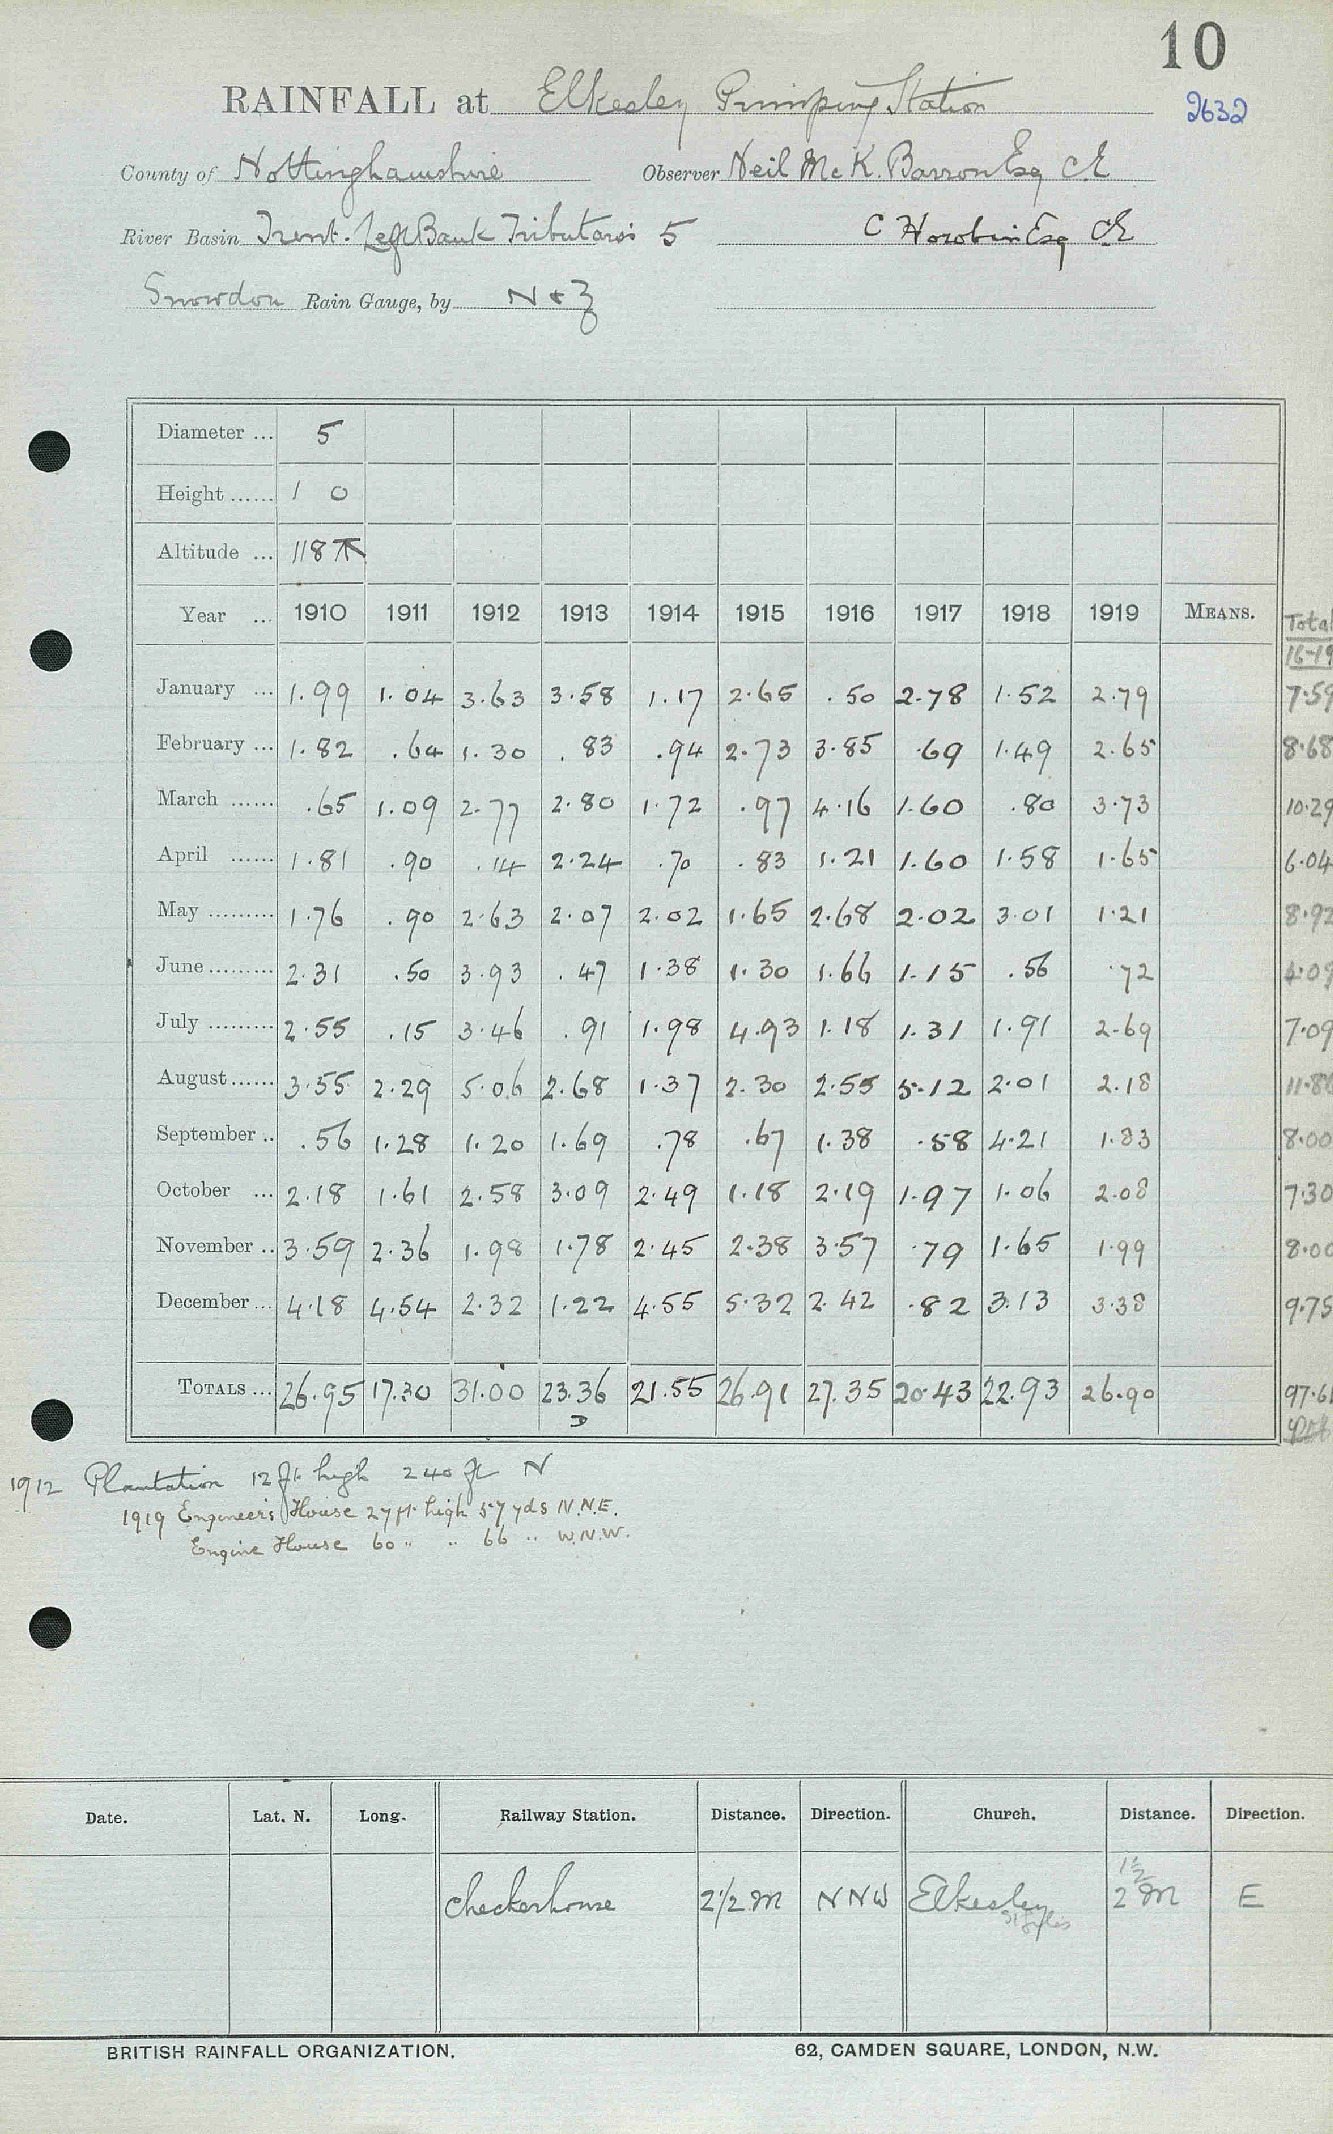 10
RAINFALL at Elkesley Pumping Station 2632
County of Nottinghamshire Observer Neil McK. Barron Esq CE
River Basin Trent. Left Bank Tributaries 5 C Horobin Esq CE
Snowdon Rain Gauge, by N & Z
Diameter ... 5
Height ...... 1 0
Altitude ... 118
Year ... 1910 1911 1912 1913 1914 1915 1916 1917 1918 1919 MEANS. Total
16-19
January ... 1.99 1.04 3.63 3.58 1.17 2.65 .50 2.78 1.52 2.79 7.59
February ... 1.82 .64 1.30 .83 .94 2.73 3.85 .69 1.49 2.65 8.68
March ...... .65 1.09 2.77 2.80 1.72 .97 4.16 1.60 .80 3.73 10.29
April ...... 1.81 .90 .14 2.24 .70 .83 1.21 1.60 1.58 1.65 6.04
May ......... 1.76 .90 2.63 2.07 2.02 1.65 2.68 2.02 3.01 1.21 8.92
June ......... 2.31 .50 3.93 .47 1.38 1.30 1.66 1.15 .56 .72 4.09
July ......... 2.55 .15 3.46 .91 1.98 4.93 1.18 1.31 1.91 2.69 7.09
August ...... 3.55 2.29 5.06 2.68 1.37 2.30 2.55 5.12 2.01 2.18 11.86
September .. .56 1.28 1.20 1.69 .78 .67 1.38 .58 4.21 1.83 8.00
October ... 2.18 1.61 2.58 3.09 2.49 1.18 2.19 1.97 1.06 2.08 7.30
November .. 3.59 2.36 1.98 1.78 2.45 2.38 3.57 .79 1.65 1.99 8.00
December ... 4.18 4.54 2.32 1.22 4.55 5.32 2.42 .82 3.13 3.38 9.75
TOTALS ... 26.95 17.30 31.00 23.36 21.55 26.91 27.35 20.43 22.93 26.90 97.61
D
1912 Plantation 12 ft high 240 ft N
1919 Engineer's House 27 ft. high 57 yds N.N.E.
Engine House 60 " " 66 " W.N.W.
Date. Lat. N. Long. Railway Station. Distance. Direction. Church. Distance. Direction.
1½
Checkerhouse 2½ M NNW Elkesley 2 M E
St Giles
BRITISH RAINFALL ORGANIZATION. 62, CAMDEN SQUARE, LONDON, N.W.